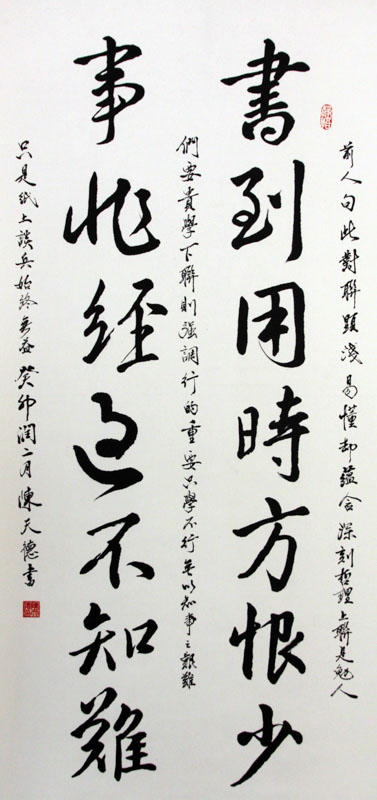 前人句此對聯顯淺易懂却蘊含深刻哲理上聯是勉人
書到用時方恨少
們要貴學下聯則强調行的重要只學不行無以知事之艱難
事非經過不知難
只是紙上談兵始終無益癸卯潤二月陳天德書